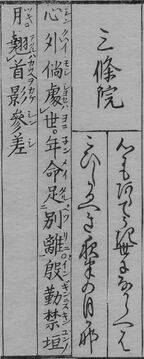 三條院
心にもあらてうき世になからへは
こひしかるへき夜半の月
心外倘處世。年命足別離殷勤禁垣
月。翹首影參差